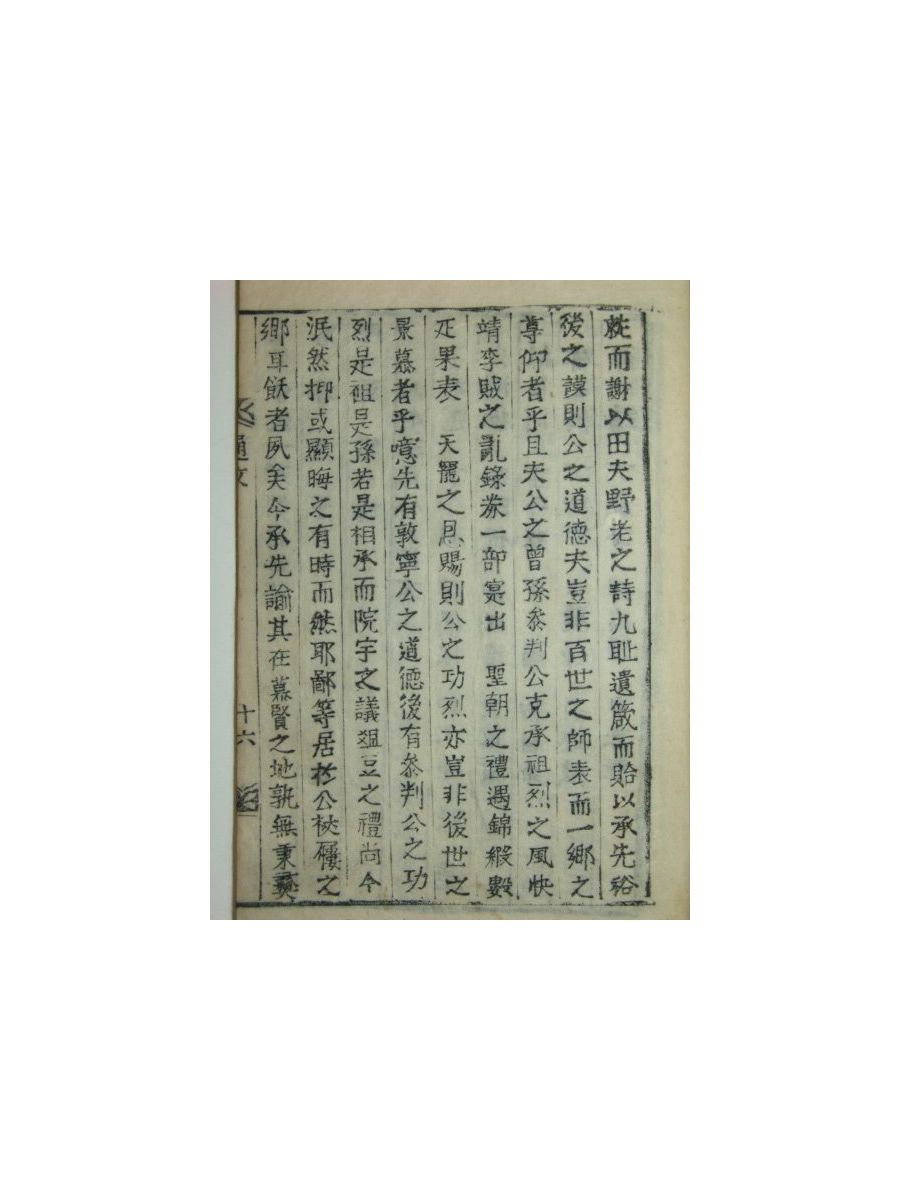 旌而謝以田夫野老之詩九耻遺箴而貽以承先裕
後之謨則公之道德夫豈非百世之師表而一鄉之
尊仰者乎且夫公之曾孫叅判公克承祖烈之風快
靖李賊之亂錄券一部寔出 聖朝之禮遇錦緞數
疋果表 天寵之恩賜則公之功烈亦豈非後世之
景慕者乎噫先有敦寧公之道德後有叅判公之功
烈是祖是孫若是相承而院宇之議爼豆之禮尚今
泯然抑或顯晦之有時而然耶鄙等居於公之
鄉耳飫者夙矣今承先諭其在慕賢之地孰無秉彛
通文
十六